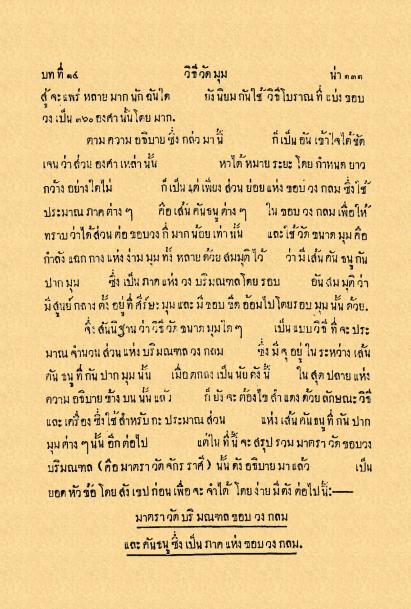 บท ที่ ๑๔ วิธี วัด มุม น่า ๑๓๑
สู้ จะ แพร่ หลาย มาก นัก อันใด ยัง นิยม กัน ใช้ วิธี โบราณ ที่ แบ่ง ขอบ
วง เป็น ๓๖๐ องศา นั้น โดย มาก.
ตาม ความ อธิบาย ซึ่ง กล่าว มา นี้ ก็ เป็น อัน เข้า ใจ ได้ ชัด
เจน ว่า ส่วน องศา เหล่า นั้น หา ได้ หมาย ระยะ โดย กำหนด ยาว
กว้าง อย่าง ใด ไม่ ก็ เป็น แต่ เพียง ส่วน ย่อย แห่ง ขอบ วง กลม ซึ่ง ใช้
ประมาณ ภาค ต่าง ๆ คือ เส้น คันธนู ต่าง ๆ ใน ขอบ วง กลม เพื่อ ให้
ทราบ ว่า ได้ ส่วน ต่อ ขอบ วง ที่ มาก น้อย เท่า นั้น และ ใช้ วัด ขนาด มุม คือ
กำลัง แฉก กาง แห่ง ง่าม มุม ทั้ง หลาย ด้วย สมมุติ ไว้ ว่า มี เส้น คัน ธนู กัน
ปาก มุม ซึ่ง เป็น ภาค แห่ง วง บริมณฑล โดย รอบ อัน สม มุติ ว่า
มี สูนย์ กลาง ตั้ง อยู่ ที่ ศีร์ษะ มุม และ มี ขอบ ขีด อ้อม ไป โดย รอบ มุม นั้น ด้วย.
จึ่ง สันนิฐาน ว่า วิธี วัด ขนาด มุม ใด ๆ เป็น แบบ วิธี ที่ จะ ประ
มาณ จำนวน ส่วน แห่ง บริมณฑล วง กลม ซึ่ง มี จุ อยู่ ใน ระหว่าง เส้น
คัน ธนู ที่ กัน ปาก มุม นั้น เมื่อ ตกลง เป็น นัย ดัง นี้ ใน สุด ปลาย แห่ง
ความ อธิบาย ข้าง บน นั้น แล้ว ก็ ยัง จะ ต้อง ไข สำแดง ด้วย ลักษณะ วิธี
และ เครื่อง ซึ่ง ใช้ สำหรับ กะ ประมาณ ส่วน แห่ง เส้น คันธนู ที่ กัน ปาก
มุม ต่าง ๆ นั้น อีก ต่อ ไป แต่ ใน ที่ นี้ จะ สรุป รวม มาตรา วัด ขอบ วง
บริมณฑล (คือ มาตรา วัด จักร ราศี) นั้น ดัง อธิบาย มา แล้ว เป็น
ยอด หัว ข้อ โดย สังเขป ก่อน เพื่อ จะ จำ ได้ โดย ง่าย มี ดัง ต่อ ไป นี้:—
มาตรา วัด บริ มณฑล ขอบ วง กลม
และ คันธนู ซึ่ง เป็น ภาค แห่ง ขอบ วง กลม.